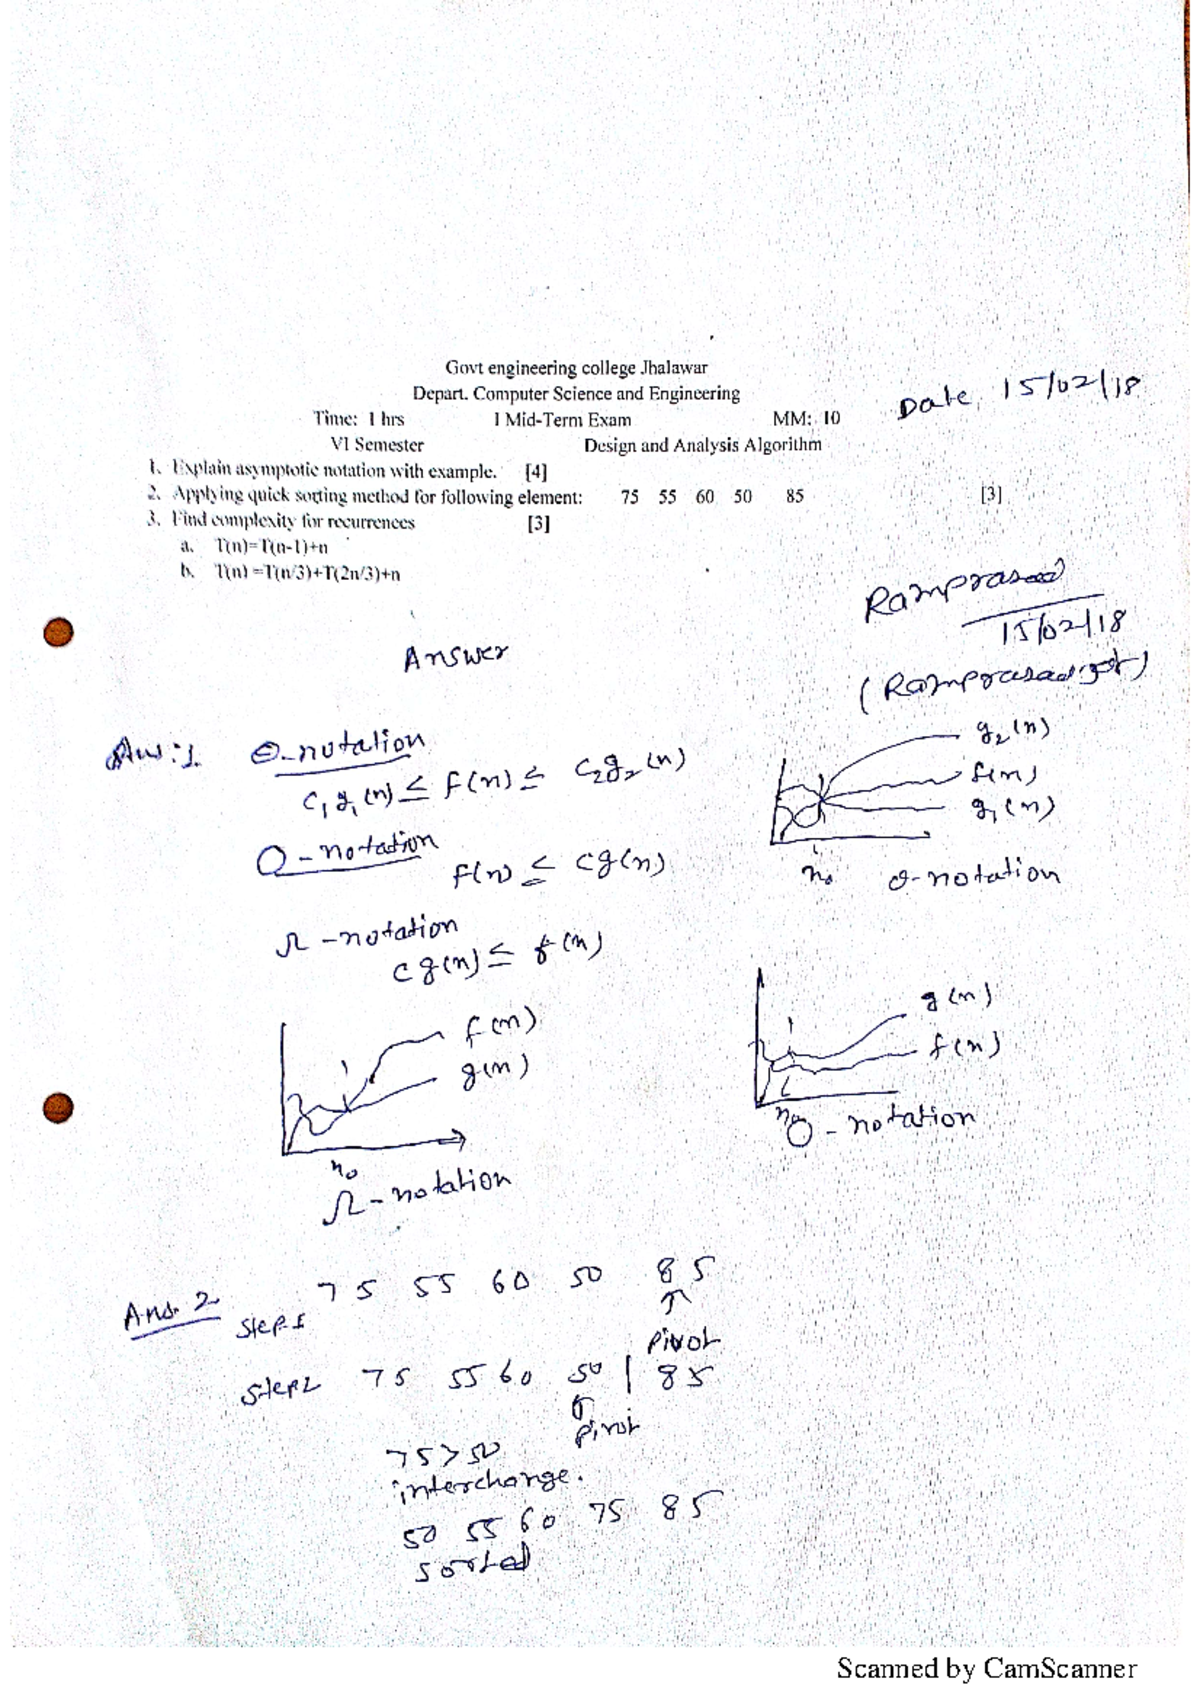 Govt engineering college Jhalawar
Depart. Computer Science and Engineering
Time: 1 hrs I Mid-Term Exam MM: 10
Date, 15/02/18
VI Semester Design and Analysis Algorithm
1. Explain asymptotic notation with example. [4]
2. Applying quick sorting method for following element: 75 55 60 50 85 [3]
3. Find complexity for recurrences [3]
a. T(n)=T(n-1)+n
b. T(n) =T(n/3)+T(2n/3)+n
Ramprasad
15/02/18
Answer
Ans:1 Θ-notation
c₁g₁(n) ≤ f(n) ≤ c₂g₂(n)
g₂(n)
f(n)
g₁(n)
n₀ θ-notation
O-notation
f(n) ≤ cg(n)
Ω-notation
cg(n) ≤ f(n)
f(n)
g(n)
n₀
Ω-notation
g(n)
f(n)
n₀
O-notation
Ans. 2
Step1 75 55 60 50 85
↑
Pivot
Step2 75 55 60 50 | 85
↑
Pivot
75 > 50
interchange.
50 55 60 75 85
Sorted
Scanned by CamScanner